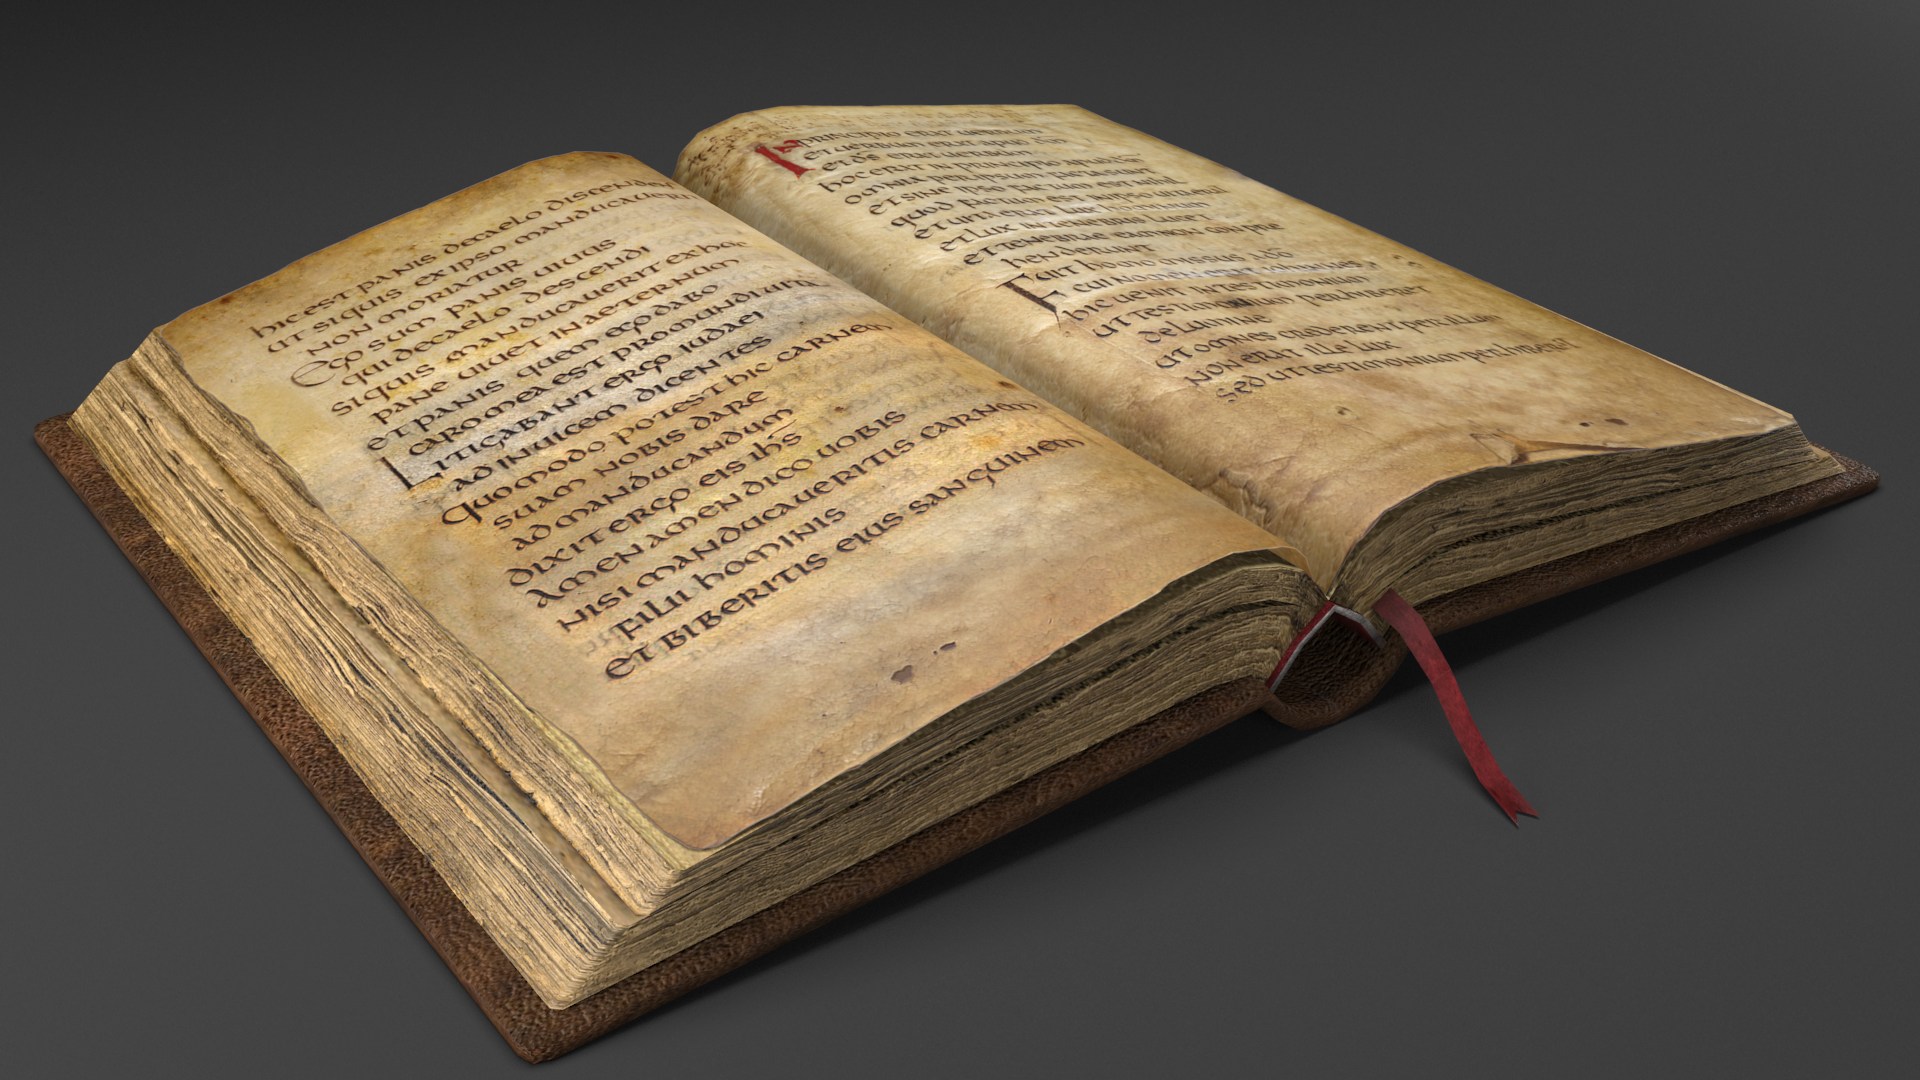 hic est panis decaelo discenden
ut siquis ex ipso manducauerit
non moriatur
Ego sum panis uiuus
qui decaelo descendi
siquis manducauerit ex hoc
pane uiuet in aeternum
et panis quem ego dabo
caro mea est pro mundi uita
Litigabant ergo iudaei
ad inuicem dicentes
quomodo potest hic carnem
suam nobis dare
ad manducandum
dixit ergo eis ihs
amen amen dico uobis
nisi manducaueritis carnem
filii hominis
et biberitis eius sanguinem
In principio erat uerbum
et uerbum erat apud
et ds erat uerbum
hoc erat in principio apud
omnia per ipsum facta sunt
et sine ipso factum est nihil
quod factum est in ipso uita est
et uita erat lux hominum
et lux in tenebris lucet
et tenebrae eam non conpre
henderunt
Fuit homo missus a do
cui nomen erat iohannes
hic uenit in testimonium
ut testimonium perhiberet
de lumine
ut omnes crederent per illum
non erat ille lux
sed ut testimonium perhiberet